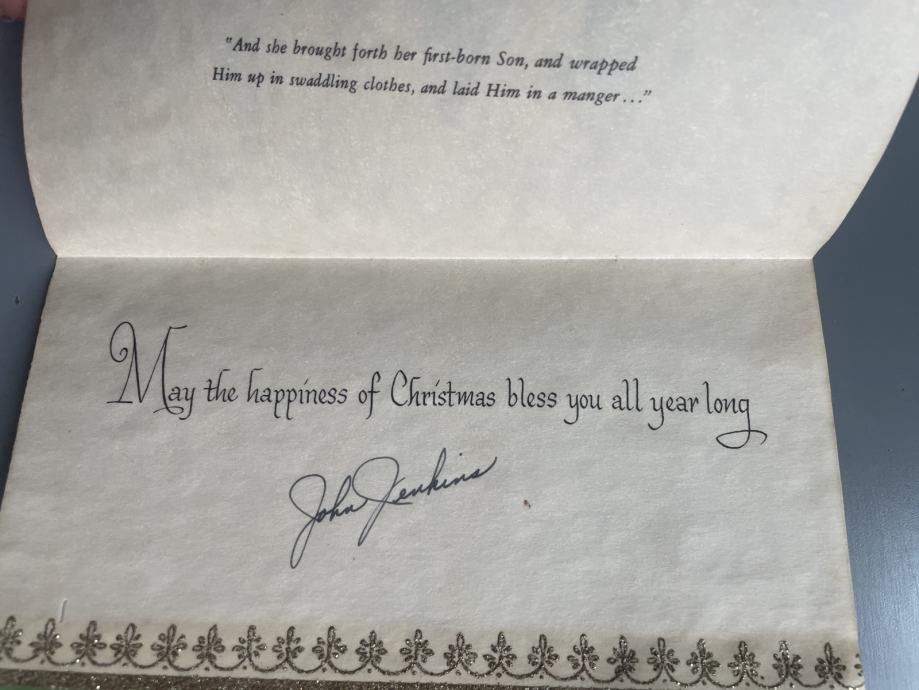 "And she brought forth her first-born Son, and wrapped
Him up in swaddling clothes, and laid Him in a manger..."
May the happiness of Christmas bless you all year long
John Jenkins